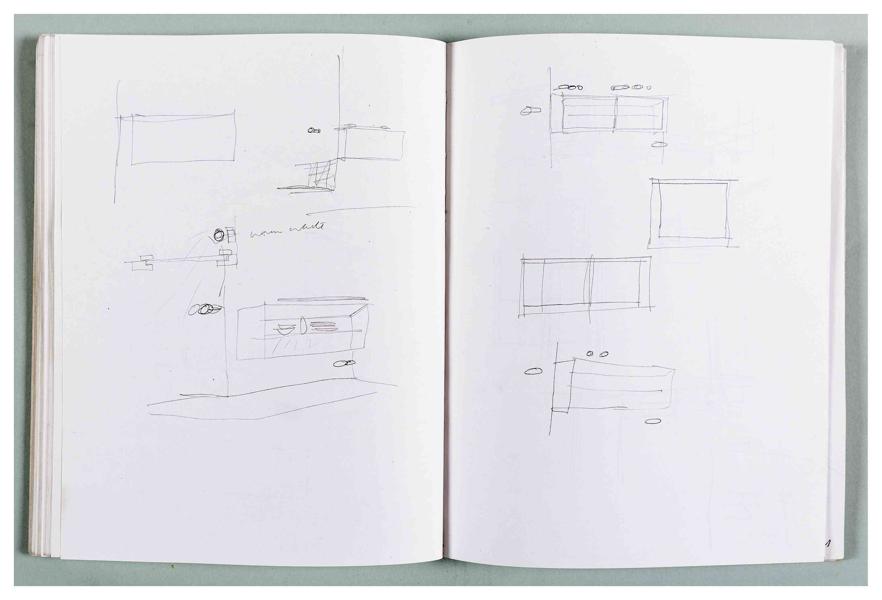 warm white